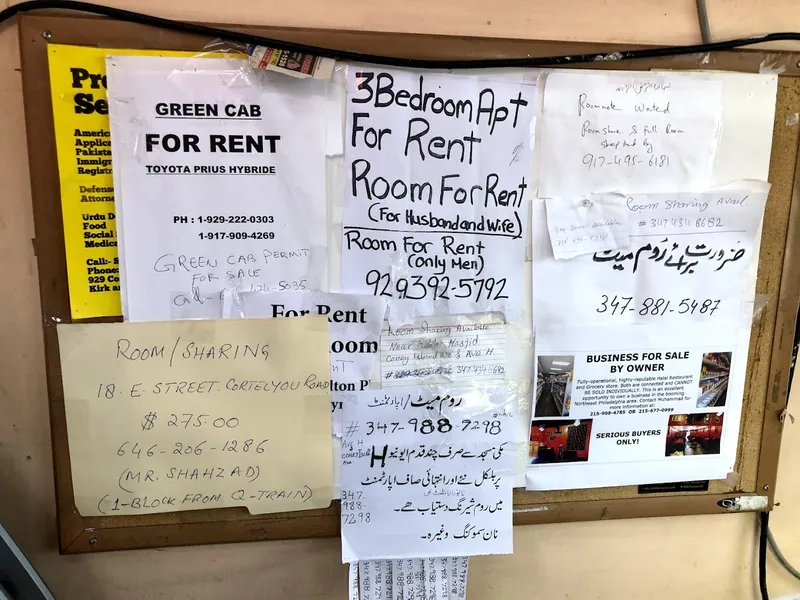 Pro
Se
America
Applica
Pakista
Immigr
Registr
Defense
Attorne
Urdu D
Food
Social
Medica
Call:- S
Phone:
929 Co
Kirk an
GREEN CAB
FOR RENT
TOYOTA PRIUS HYBRIDE
PH : 1-929-222-0303
1-917-909-4269
GREEN CAB PERMIT
FOR SALE
3 Bedroom Apt
For Rent
Room For Rent
(For Husband and Wife)
Room For Rent
(only Men)
929392-5792
Roommate Wanted
Room share & Full Room
917-495-6181
Room Sharing Avail
# 347 434 8682
ضرورت برائے روم میٹ
347-881-5487
BUSINESS FOR SALE
BY OWNER
Fully-operational, highly-reputable Halal Restaurant
and Grocery store. Both are connected and CANNOT
BE SOLD INDIVIDUALLY. This is an excellent
opportunity to own a business in the booming
Northeast Philadelphia area. Contact Muhammad for
more information at:
215-908-4785 OR 215-677-0999
SERIOUS BUYERS
ONLY!
ROOM/SHARING
18. E. STREET. CORTELYOU ROAD
$ 275.00
646-206-1286
(MR. SHAHZAD)
(1-BLOCK FROM Q-TRAIN)
For Rent
oom
lton P
Room Sharing Available
Near Makki Masjid
Coney Island Ave & Ave H
روم میٹ / اپارٹمنٹ
# 347-988-7298
مکی مسجد سے صرف چند قدم ایونیو H
پر بلکل نئے اور انتہائی صاف اپارٹمنٹ
میں روم شیرنگ دستیاب ہے۔
نان سموکنگ وغیرہ۔
347-
988-
7298